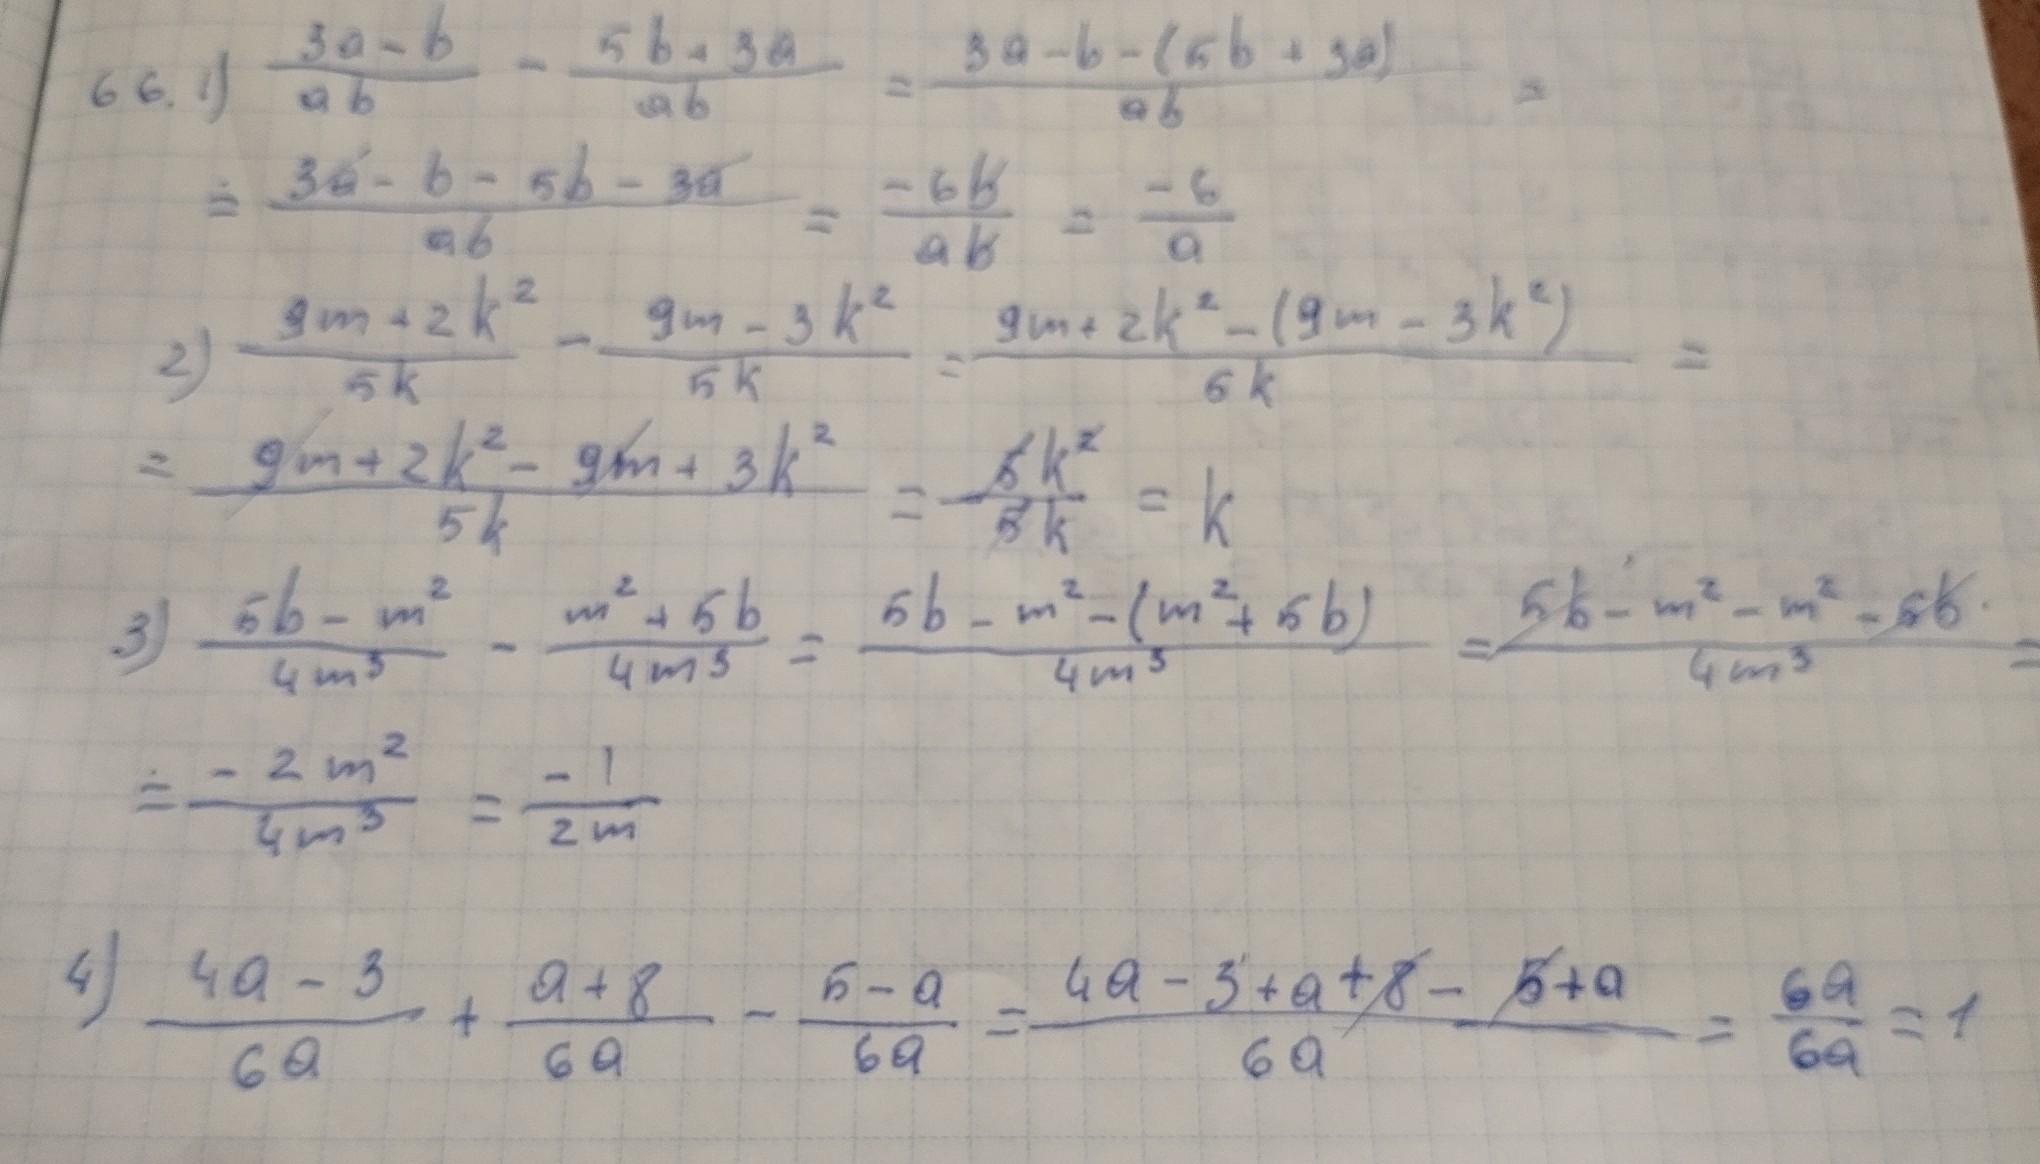 66. 1) (3a - b)/(ab) - (5b + 3a)/(ab) = (3a - b - (5b + 3a))/(ab) =
= (3a - b - 5b - 3a)/(ab) = (-6b)/(ab) = (-6)/a
2) (9m + 2k²)/(5k) - (9m - 3k²)/(5k) = (9m + 2k² - (9m - 3k²))/(5k) =
= (9m + 2k² - 9m + 3k²)/(5k) = (5k²)/(5k) = k
3) (5b - m²)/(4m³) - (m² + 5b)/(4m³) = (5b - m² - (m² + 5b))/(4m³) = (5b - m² - m² - 5b)/(4m³) =
= (-2m²)/(4m³) = (-1)/(2m)
4) (4a - 3)/(6a) + (a + 8)/(6a) - (5 - a)/(6a) = (4a - 3 + a + 8 - 5 + a)/(6a) = (6a)/(6a) = 1